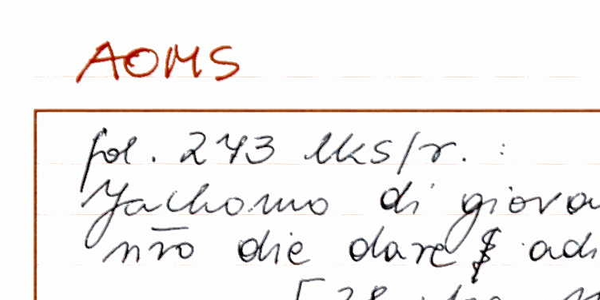 AOMS
fol. 273 lks/r. :
Jachomo di giova
nr̄o die dare $ adi
[ 28